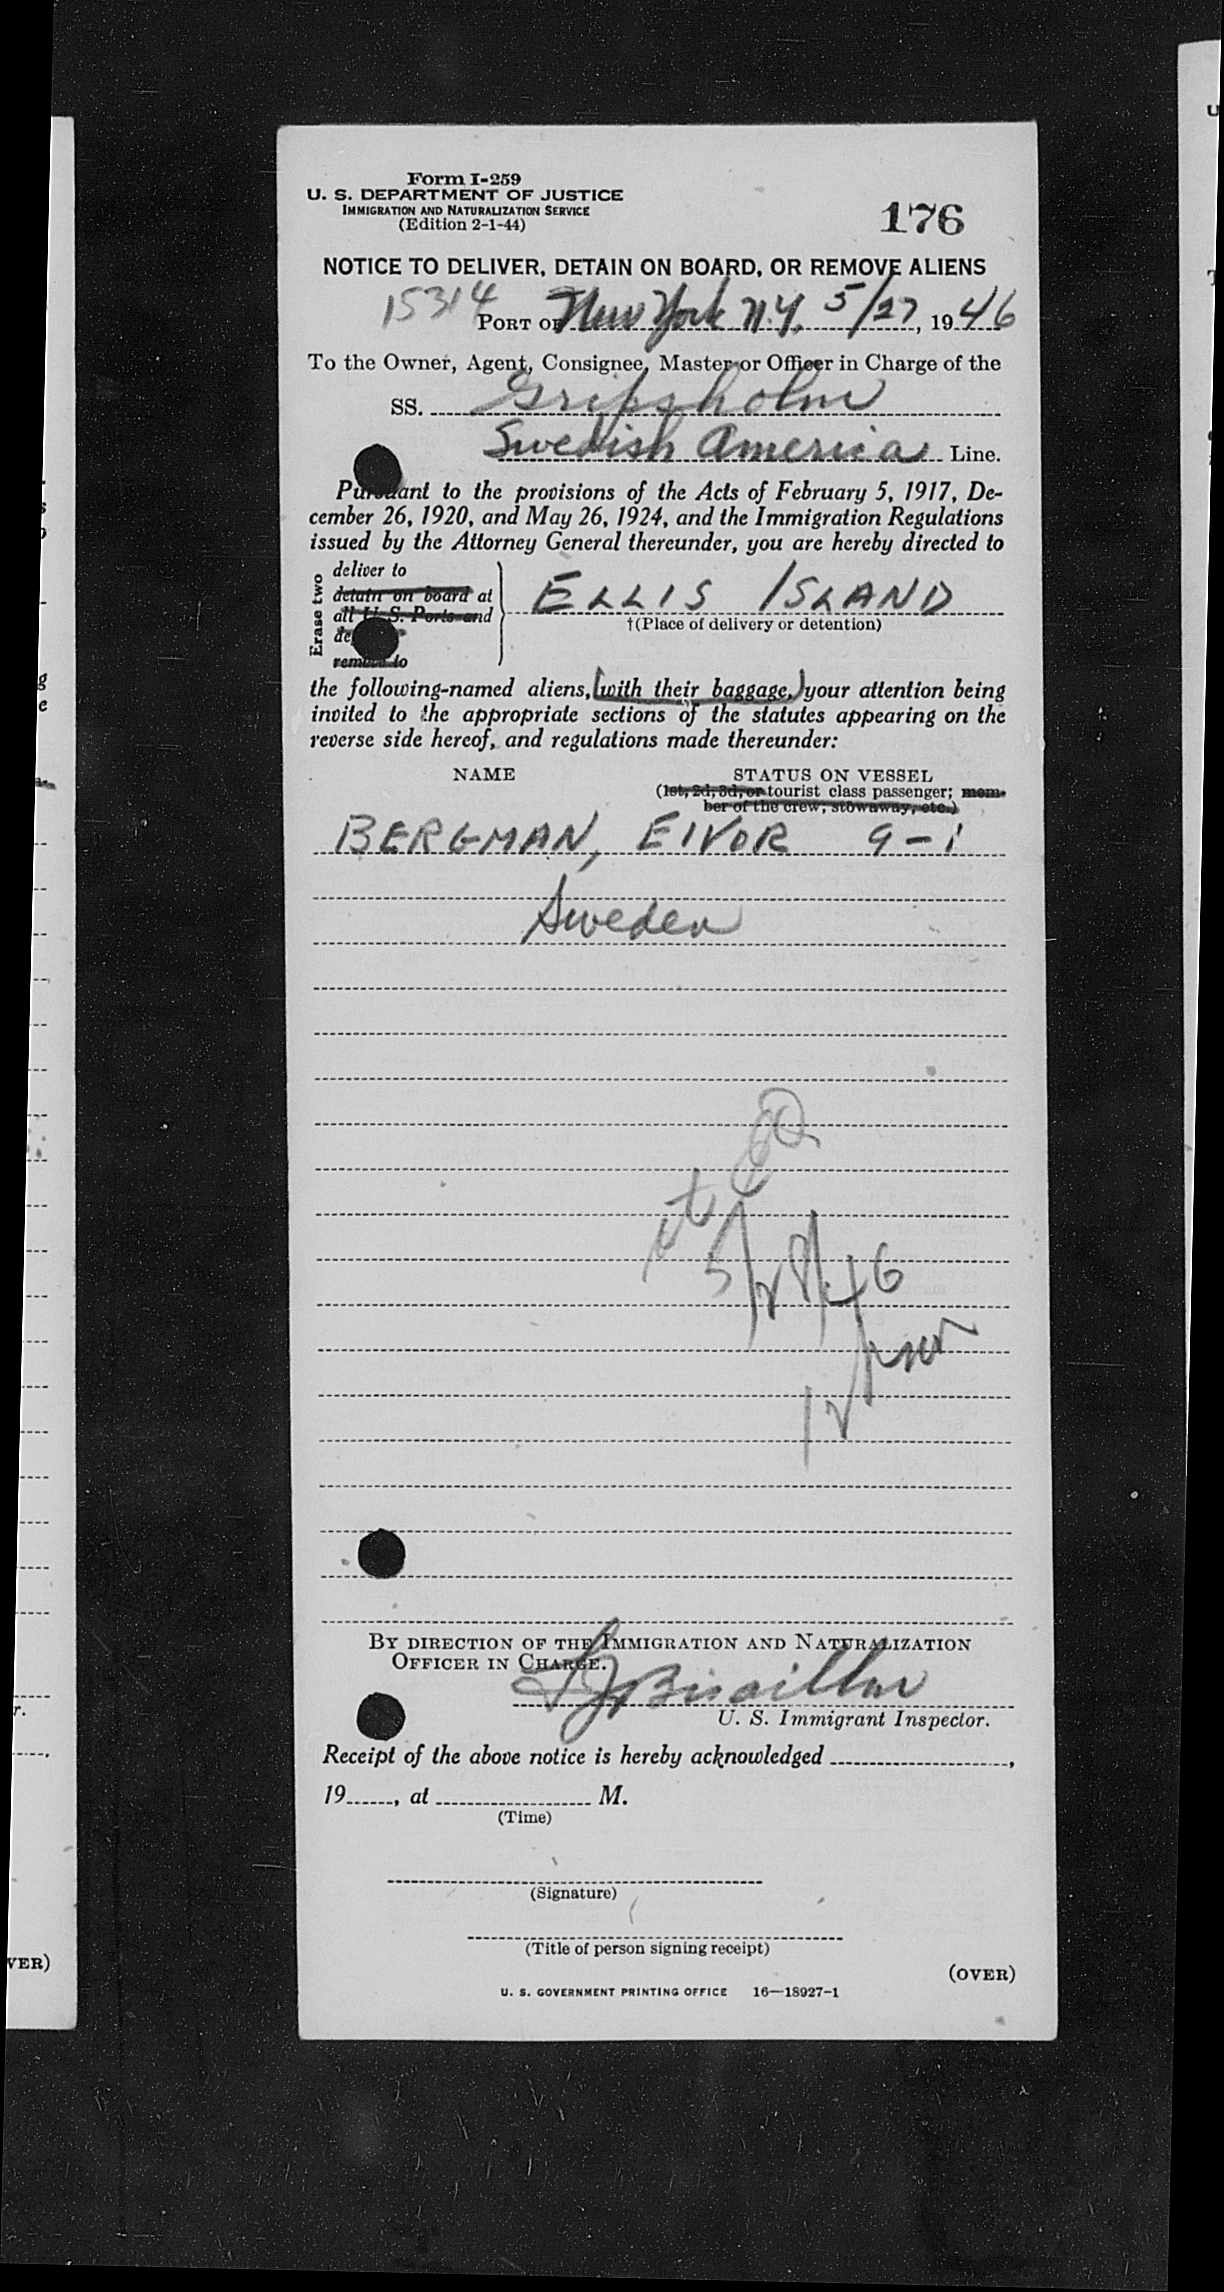 Form I-259
U. S. DEPARTMENT OF JUSTICE
IMMIGRATION AND NATURALIZATION SERVICE
(Edition 2-1-44)
176
NOTICE TO DELIVER, DETAIN ON BOARD, OR REMOVE ALIENS
15314
PORT OF New York N.Y. 5/27, 1946
To the Owner, Agent, Consignee, Master or Officer in Charge of the
SS. Gripsholm
Swedish America Line.
Pursuant to the provisions of the Acts of February 5, 1917, De-
cember 26, 1920, and May 26, 1924, and the Immigration Regulations
issued by the Attorney General thereunder, you are hereby directed to
Erase two
deliver to
detain on board at
all U. S. Ports and
remove to
ELLIS ISLAND
†(Place of delivery or detention)
the following-named aliens, (with their baggage,) your attention being
invited to the appropriate sections of the statutes appearing on the
reverse side hereof, and regulations made thereunder:
NAME STATUS ON VESSEL
(1st, 2d, 3d, or tourist class passenger; mem-
ber of the crew; stowaway, etc.)
BERGMAN, EIVOR 9-1
Sweden
5/28/46
BY DIRECTION OF THE IMMIGRATION AND NATURALIZATION
OFFICER IN CHARGE.
U. S. Immigrant Inspector.
Receipt of the above notice is hereby acknowledged ,
19 , at M.
(Time)
(Signature)
(Title of person signing receipt)
(OVER)
U. S. GOVERNMENT PRINTING OFFICE 16—18927-1
VER)